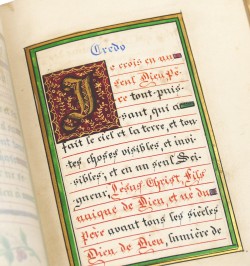 Credo
Je crois en un
seul Dieu, Pè
re tout-puis
sant, qui a
fait le ciel et la terre, et tou
tes choses visibles, et invi
sibles; et en un seul Sei
gneur, Jésus Christ, Fils
unique de Dieu, et né du
Père avant tous les siècles
Dieu de Dieu, lumière de